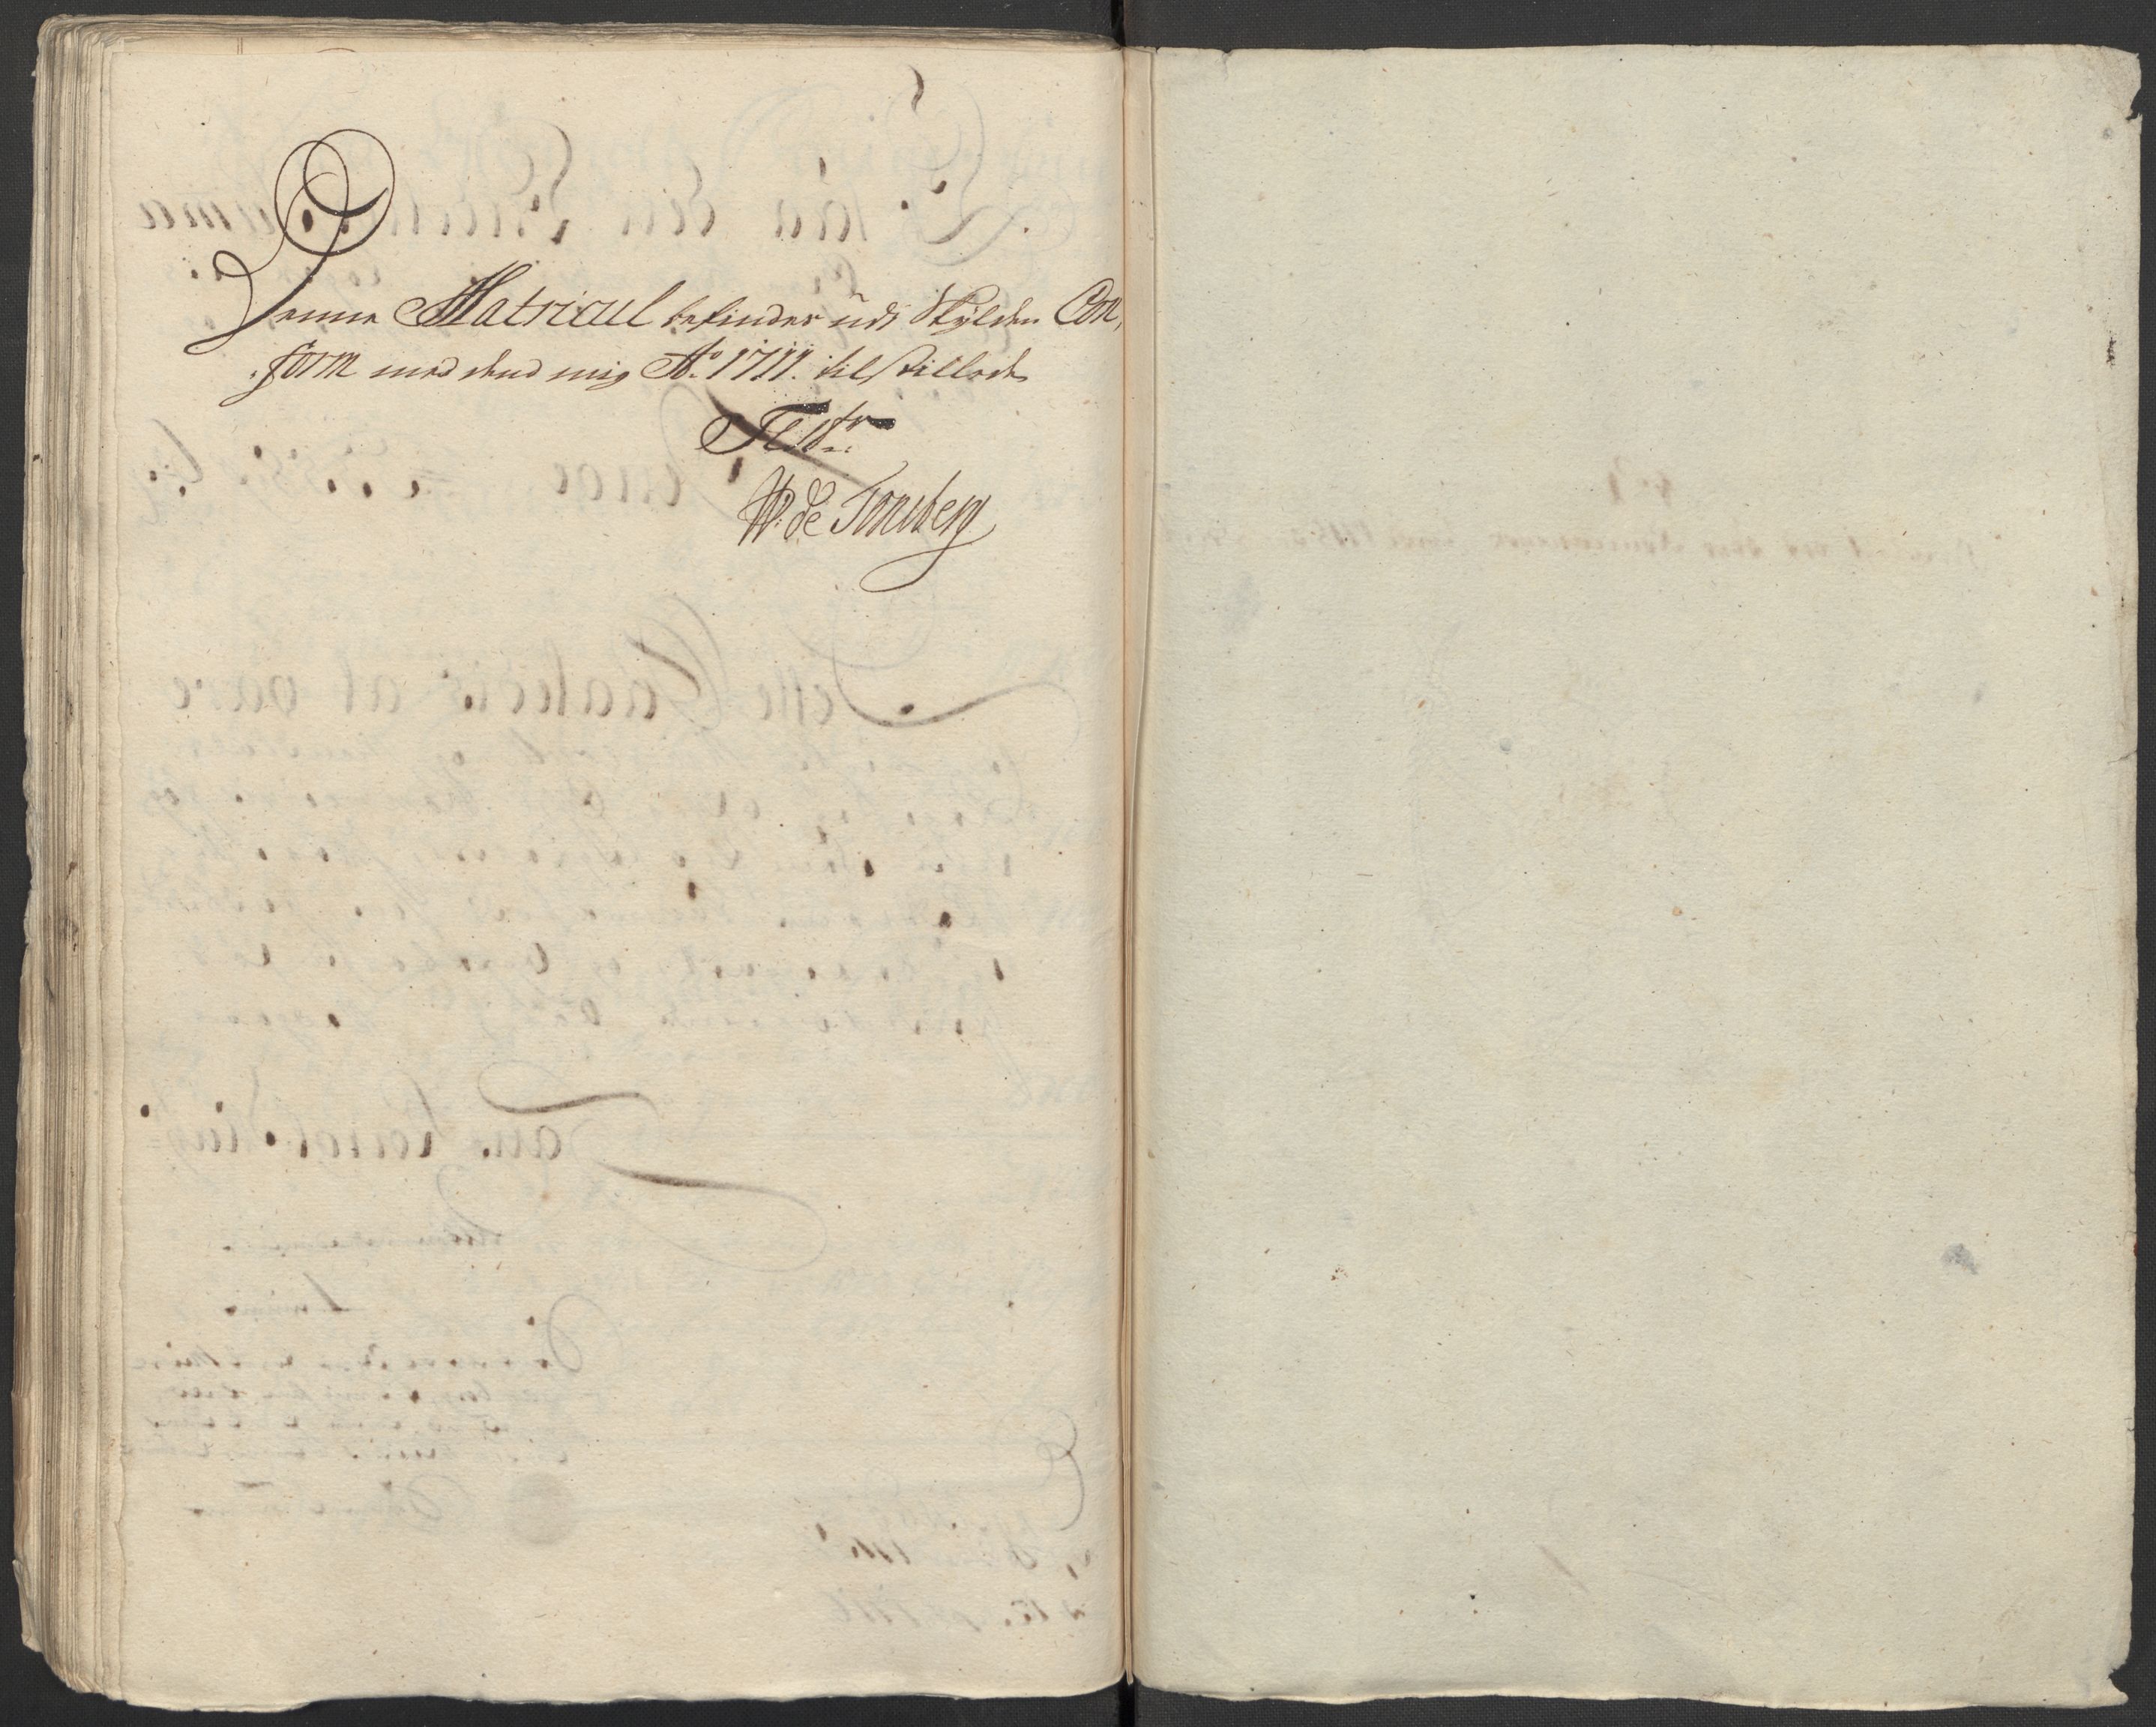 Denne Matricul befindes udi Skylden Con,
,form med dend mig Ao. 1711. tilstillede
Testr
W: de Tonsberg